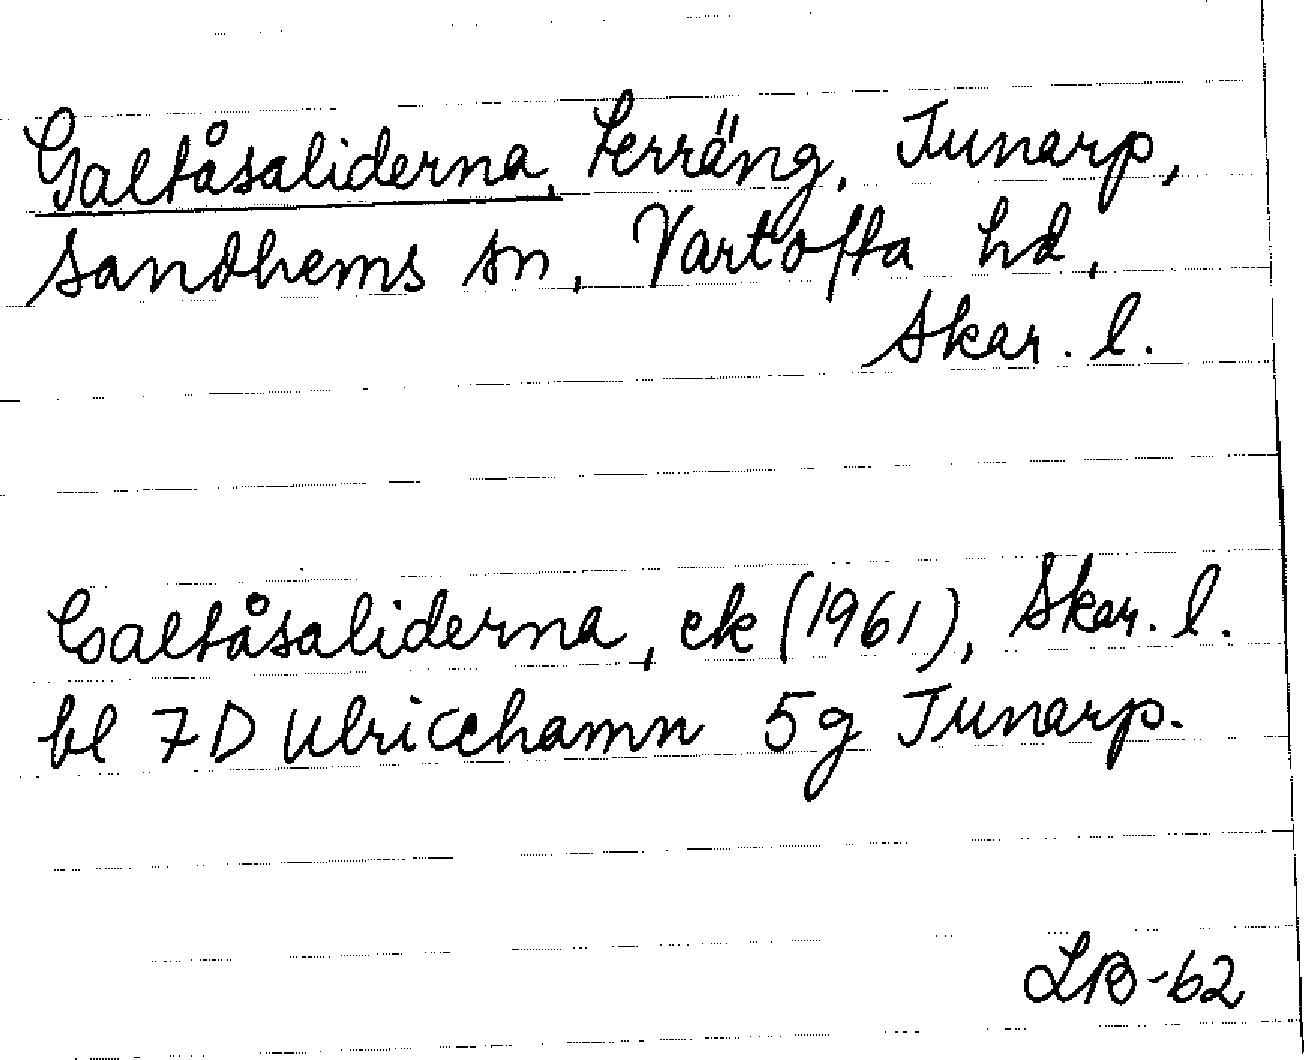 Galtåsaliderna, terräng, Tunarp,
Sandhems sn, Vartofta hd,
Skar. l.
Galtåsaliderna, ek (1961), Skar. l.
bl 7D Ulricehamn 5g Tunarp.
LB-62